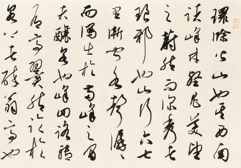 環滁皆山也其西南
諸峰林壑尤美望
之蔚然而深秀者
琅邪也山行六七
里漸聞水聲潺潺
而瀉出於兩峰之間
者釀泉也峰回路轉
有亭翼然臨於泉
上者醉翁亭也